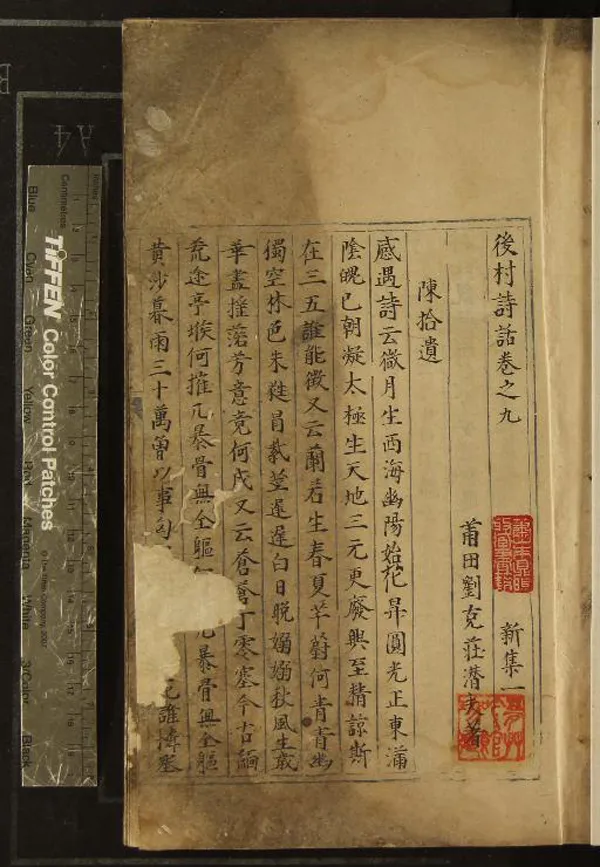 後村詩話卷之九
新集一
莆田劉克莊潛夫著
陳拾遺
感遇詩云微月生西海幽陽始化昇圓光正東滿
陰魄已朝凝太極生天地三元更廢興至精諒斯
在三五誰能徵又云蘭若生春夏芊蔚何青青幽
獨空林色朱蕤冒紫莖遲遲白日晚嫋嫋秋風生歲
華盡摧落芳意竟何成又云蒼蒼丁零塞今古緬
荒途亭堠何摧兀暴骨無全軀 兀暴骨無全軀
黃沙暮 雨三十萬曾以事匈 誰憐塞
TIFFEN Color Control Patches
© The Tiffen Company, 2007
Centimetres
Inches
Blue
Cyan
Green
Yellow
Red
Magenta
White
3/Color
Black
A4
B